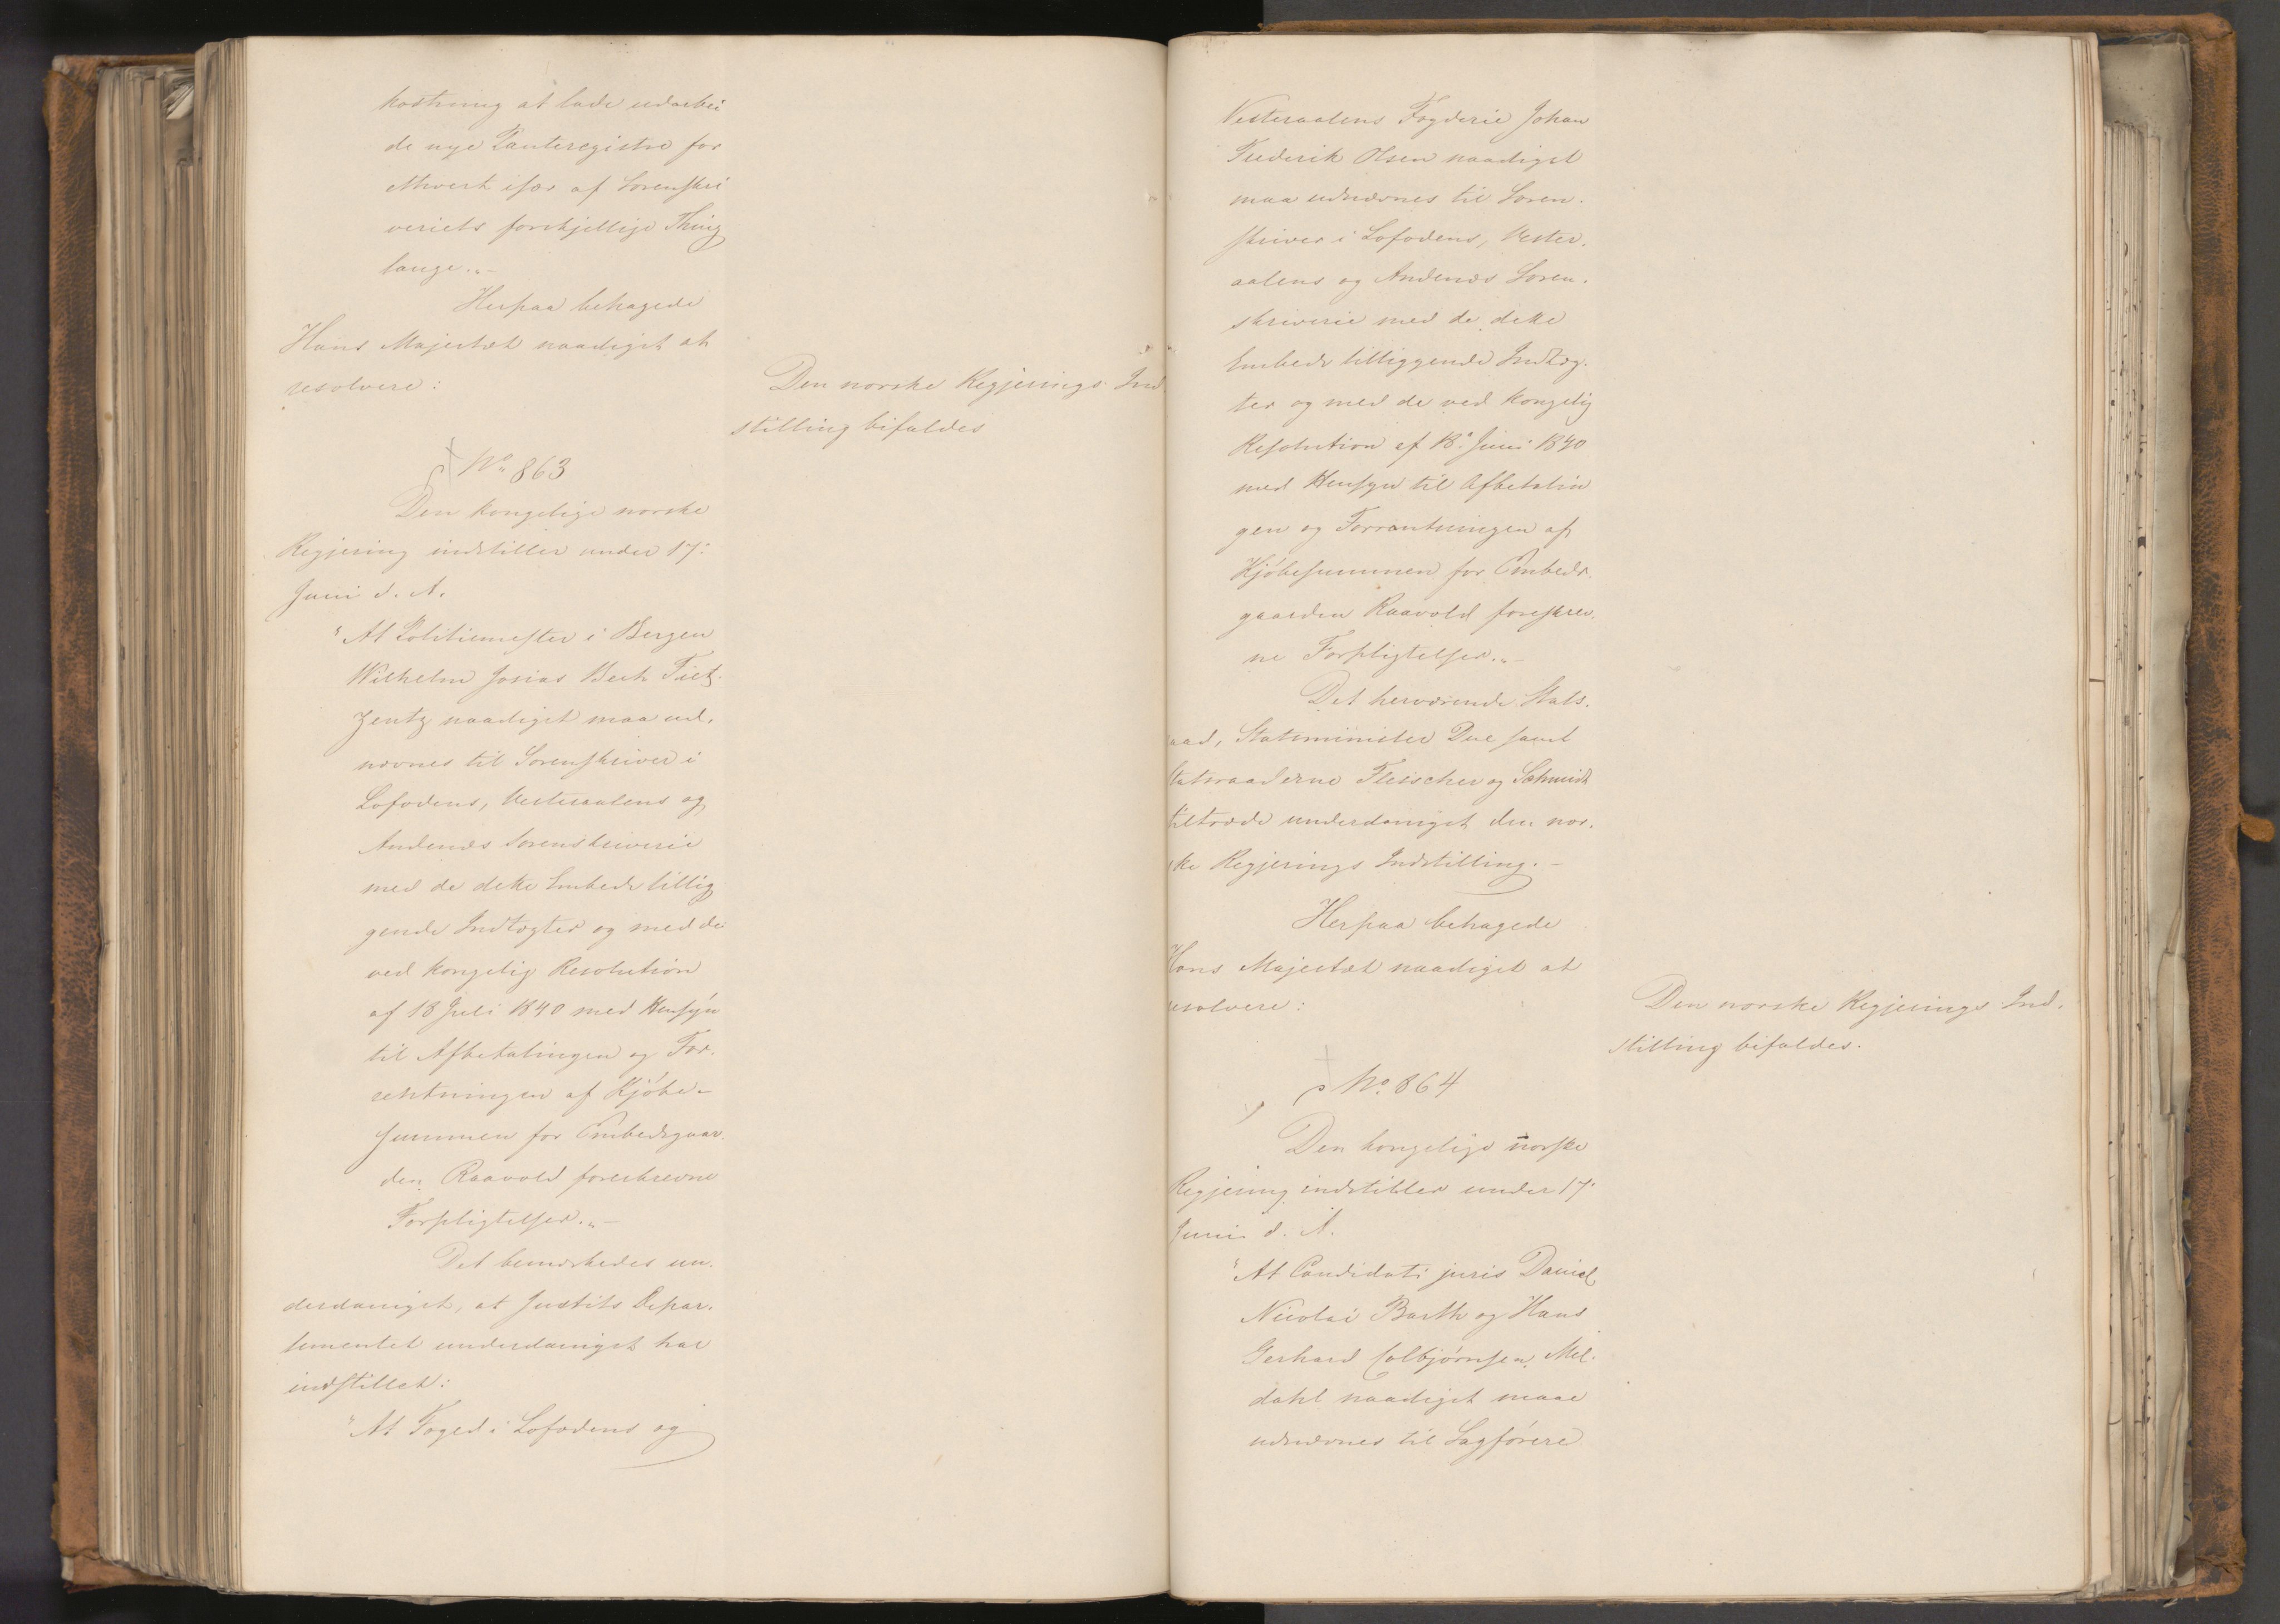 kostning at lade udarbei
de nye Panteregistre for
ethvert især af Sorenskri
veriets forskjellige Thing
lauge."-
Herpaa behagede
Hans Majestæt naadigst at
resolvere:
Den norske Regjerings Ind
stilling bifaldes
No 863
Den kongelige norske
Regjering indstiller under 17:
Juni d. A.
"At Politiemester i Bergen
Wilhelm Josias Bech
naadigst maa ud.
nævnes til Sorenskriver i
Lofodens, Vesteraalens og
Andenæs Sorenskriverie
med de dette Embede tillig
gende Indtægter og med de
ved kongelig Resolution
af 18 Juli 1840 med Hensyn
til Afbetalingen og For.
rentningen af Kjöbe-
summen for Embedsgaar.
den Raavold foreskrevne
Forpligtelser."-
Det bemærkedes un.
derdanigst, at Justits Depar.
tementet underdanigst har
indstillet:
"At Foged i Lofodens og
Vesteraalens Fogderie Johan
Frederik Olsen naadigst
maa udnævnes til Soren.
skriver i Lofodens, Vester.
aalens og Andenæs Soren.
skriverie med de dette
Embede tilliggende Indtæg.
ter og med de ved kongelig
Resolution af 18: Juni 1840
med Hensyn til Afbetalin
gen og Forrentningen af
Kjöbesummen for Embeds.
gaarden Raavold foreskrev.
ne Forpligtelser."-
Det herværende Stats.
raad, Statsminister Due samt
Statsraaderne Fleischer og Schmidt
tiltræde underdanigst den nor.
ske Regjerings Indstilling.-
Herpaa behagede
Hans Majestæt naadigst at
resolvere:
Den norske Regjerings Ind.
stilling bifaldes.
No. 864
Den kongelige norske
Regjering indstiller under 17:
Juni d. A.
"At Candidati juris Daniel
Nicolai Barth og Hans
Gerhard Colbjørnsen Mel.
dahl naadigst maae
udnævnes til Sagförere